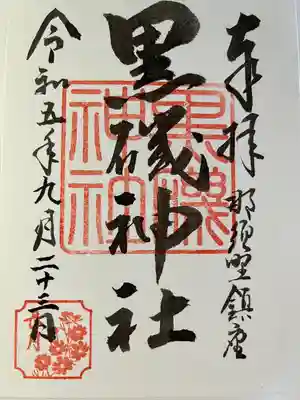 奉拝
那須野鎮座
黒磯神社
黒磯神社
令和五年九月二十三日